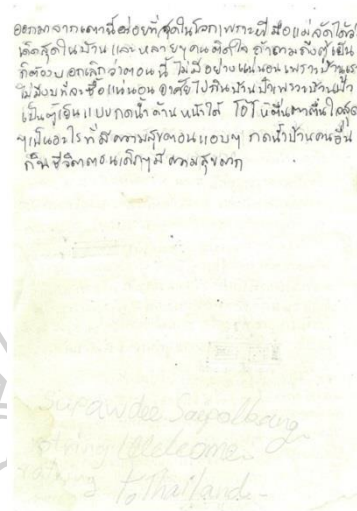 ออกมาจากเตานี้อร่อยที่สุดในโลกเพราะฝีมือแม่จัดได้ว่า
เด็ดสุดในบ้าน และหลายๆคนติดใจ ถ้าถามถึงตู้เย็น
ก็ต้องบอกเลยว่าตอนนี้ ไม่มีอย่างแน่นอน เพราะบ้านเรา
ไม่มีงบที่จะซื้อแน่นอน อาศัยไปกินบ้านป้าเพราะบ้านป้า
เป็นตู้เย็นแบบกดน้ำด้านหน้าได้ โอ้โห ตื่นตาตื่นใจสุด
ๆเป็นอะไรที่มีความสุขตอนแอบๆ กดน้ำบ้านคนอื่น
ก็เป็นชีวิตตอนเด็กๆมีความสุขมาก
Supawdee
Welcome
to Thailand